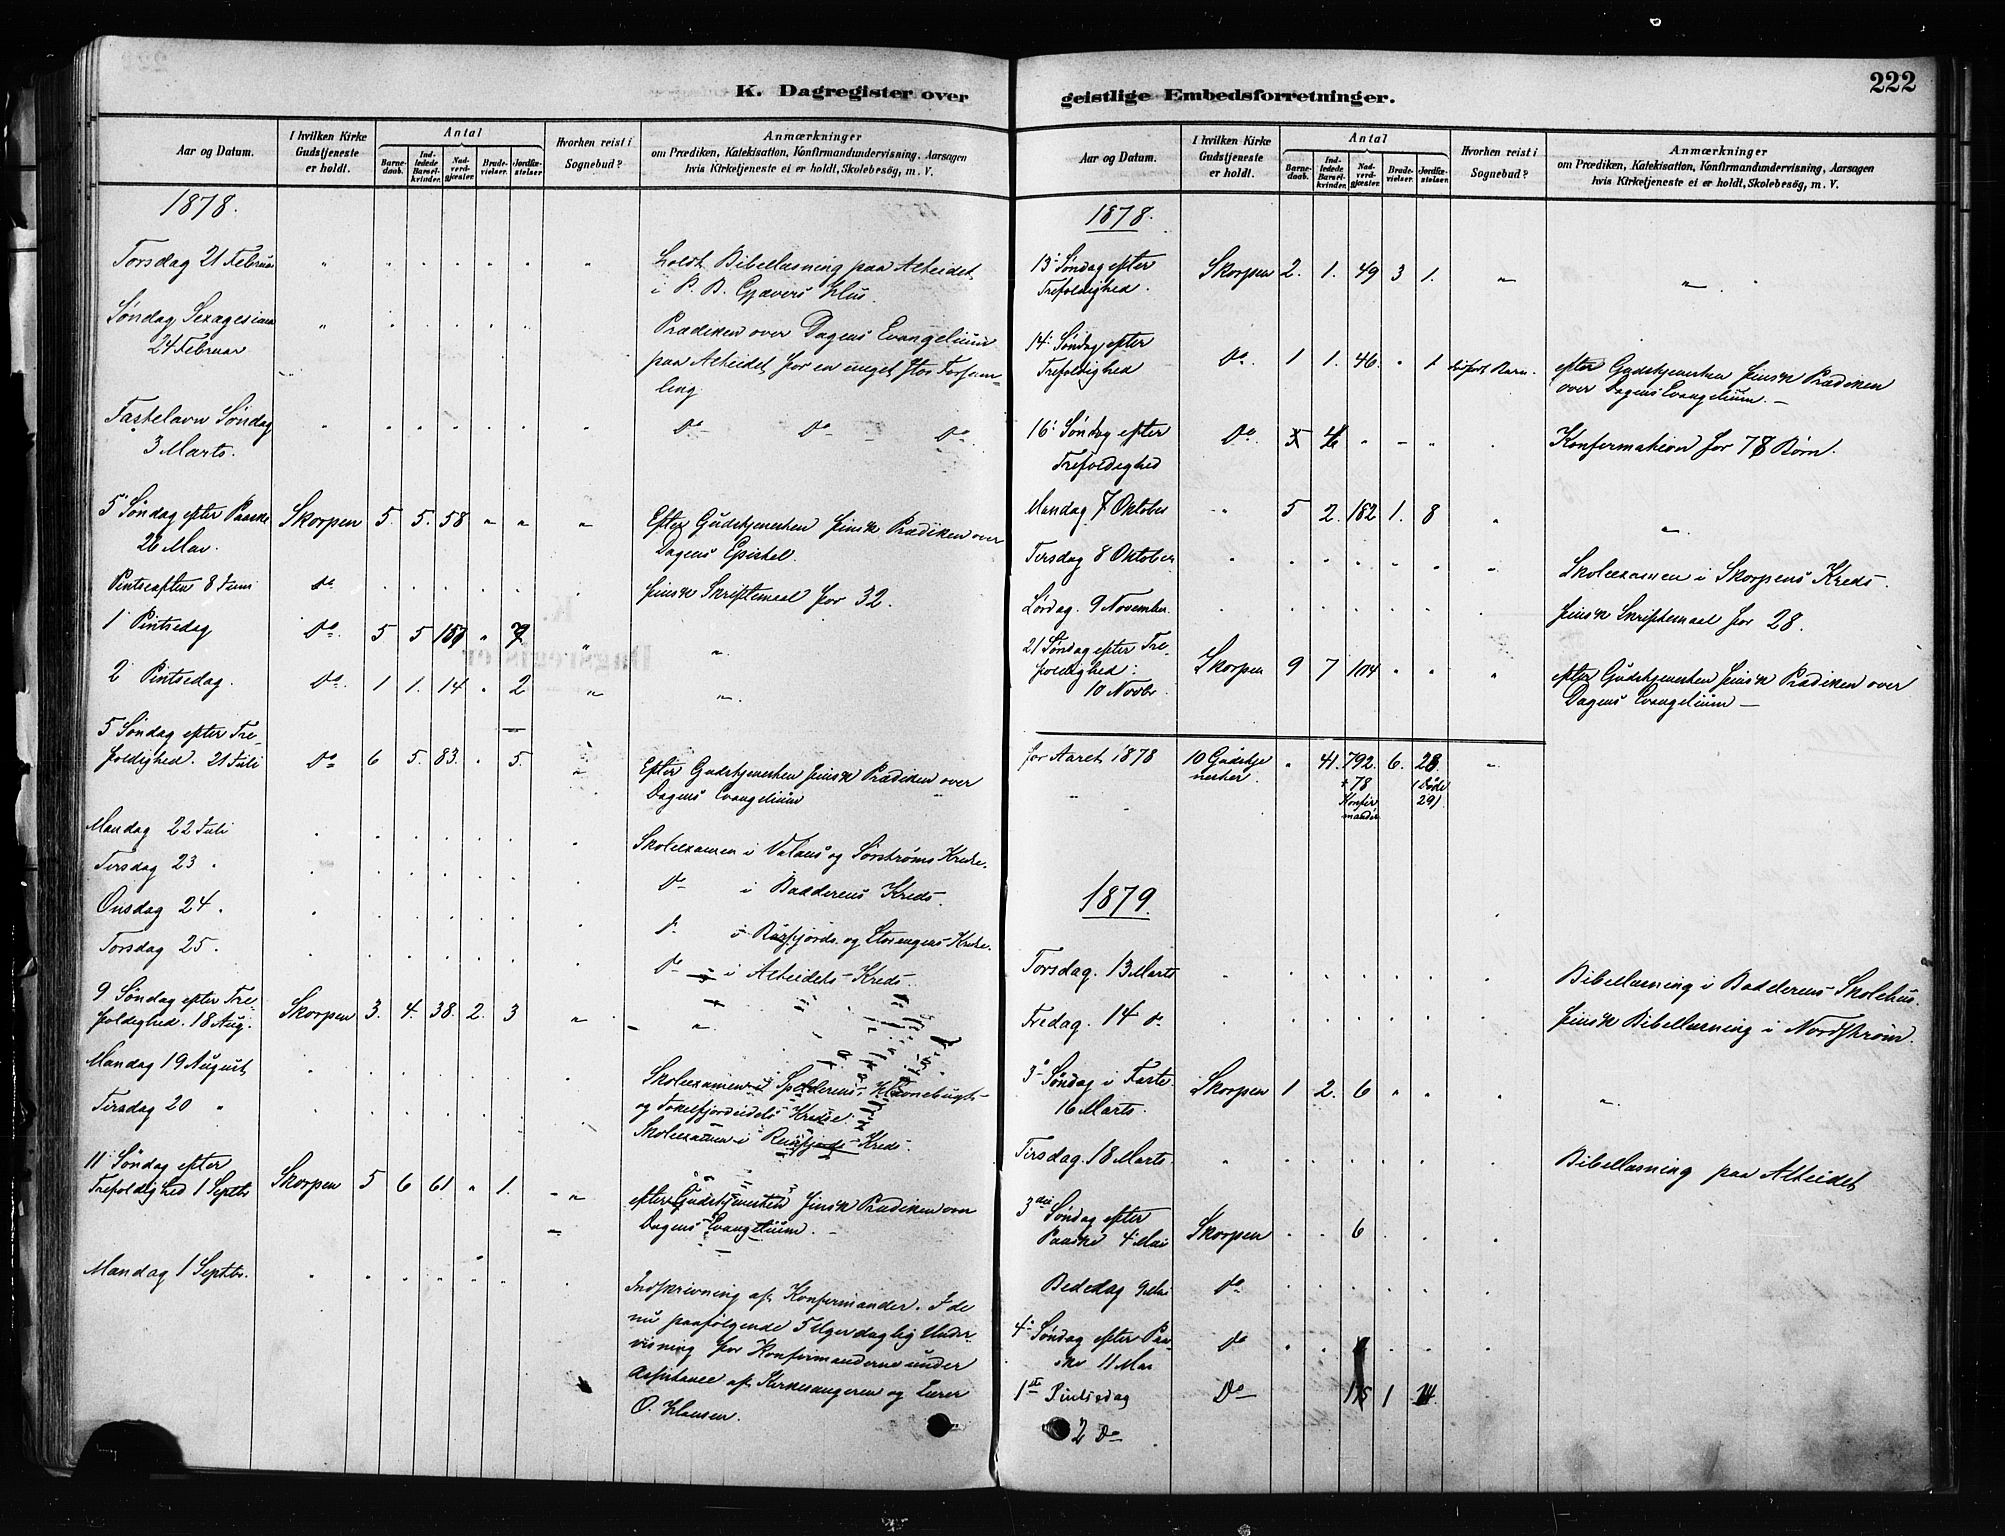 222
K. Dagregister over
geistlige Embedsforretninger.
Aar og Datum.
I hvilken Kirke Gudstjeneste er holdt.
Antal
Barnedaab.
Indledede Barselkvinder.
Nadverdgjæster.
Brudevielser.
Jordfæstelser.
Hvorhen reist i Sognebud?
Anmærkninger
om Prædiken, Katekisation, Konfirmandundervisning, Aarsagen
hvis Kirketjeneste ei er holdt, Skolebesög, m. V.
1878.
Torsdag 21 Februar " Holdt Bibellæsning paa Alteidet
i P. B. Gjævers Hus.
Søndag Sexagesima "
24 Februar
Prædiken over Dagens Evangelium
paa Alteidet for en meget stor Forsam-
ling
Fastelavn Søndag
3 Marts.
Do Do Do
5 Søndag efter Paaske Skorpen 5. 5. 58 " " "
26 Mai.
Efter Gudstjenesten finsk Prædiken over
Dagens Epistel.
Pintseaften 8 Juni Do finsk Skriftemaal for 32.
1 Pintsedag Do. 5 5 157 " 7 " "
2 Pintsedag. Do. 1 1. 14 . 2 " "
5 Søndag efter Tre-
foldighed. 21 Juli Do 6 5. 83. . 5. "
Efter Gudstjenesten finsk Prædiken over
Dagens Evangelium
Mandag 22 Juli Skoleexamen i og Sørstrøms Kredse.
Tirsdag 23 . Do i Badderens Kreds.
Onsdag 24 . Do i og Storengens Kredse.
Torsdag 25 . Do i Alteidets Kreds.
9 Søndag efter Tre-
foldighed. 18 Aug. Skorpen 3. 4. 38. 2. 3 " "
Mandag 19 August Skoleexamen i Spelderens,
Tirsdag 20 " og Kredse.
Skoleexamen i Kreds.
11 Søndag efter
Trefoldighed 1 Septbr Skorpen 5 6 61 " 1. "
efter Gudstjenesten finsk Prædiken over
Dagens Evangelium.
Mandag 1 Septbr.
Indskrivning af Konfirmander. I de
nu paafølgende 5 Uger daglig Under-
visning for Konfirmanderne under
Assistance af Kirkesangeren og Lærer
O. Hansen.
Aar og Datum.
I hvilken Kirke Gudstjeneste er holdt.
Antal
Barnedaab.
Indledede Barselkvinder.
Nadverdgjæster.
Brudevielser.
Jordfæstelser.
Hvorhen reist i Sognebud?
Anmærkninger
om Prædiken, Katekisation, Konfirmandundervisning, Aarsagen
hvis Kirketjeneste ei er holdt, Skolebesög, m. V.
1878.
13 Søndag efter Skorpen 2. 1. 49 3 1. " "
Trefoldighed.
14 Søndag efter
Trefoldighed Do. 1 1. 46. " 1
efter Gudstjenesten finsk Prædiken
over Dagens Evangelium.
16 Søndag efter Do. Konfirmation for 78 Børn.
Trefoldighed
Mandag 7 Oktober " 5 2. 182 1. 8 " "
Tirsdag 8 Oktober Skoleexamen i Skorpens Kreds
Lørdag. 9 November finsk Skriftemaal for 28.
21 Søndag efter Tre-
foldighed: Skorpen 9 7 104 " " "
10 Novbr.
efter Gudstjenesten finsk Prædiken over
Dagens Evangelium
for Aaret 1878 10 Gudstje- " 41. 792. 6. 28.
nester.
+ 78 Konfirmander
(Døde 29)
1879.
Torsdag. 13 Marts Bibellæsning i Badderens Skolehus.
Fredag. 14 do finsk Bibellæsning i Nordstrøm.
3 Søndag i Faste Skorpen 1 2. 6 " " " "
16 Marts.
Tirsdag. 18 Marts. Bibellæsning paa Alteidet
3die Søndag efter
Paaske 4 Mai Skorpen . . 6
Bededag Do
4 Søndag efter Paa-
ske 11 Mai Do
1ste Pintsedag Do 1
2 Do